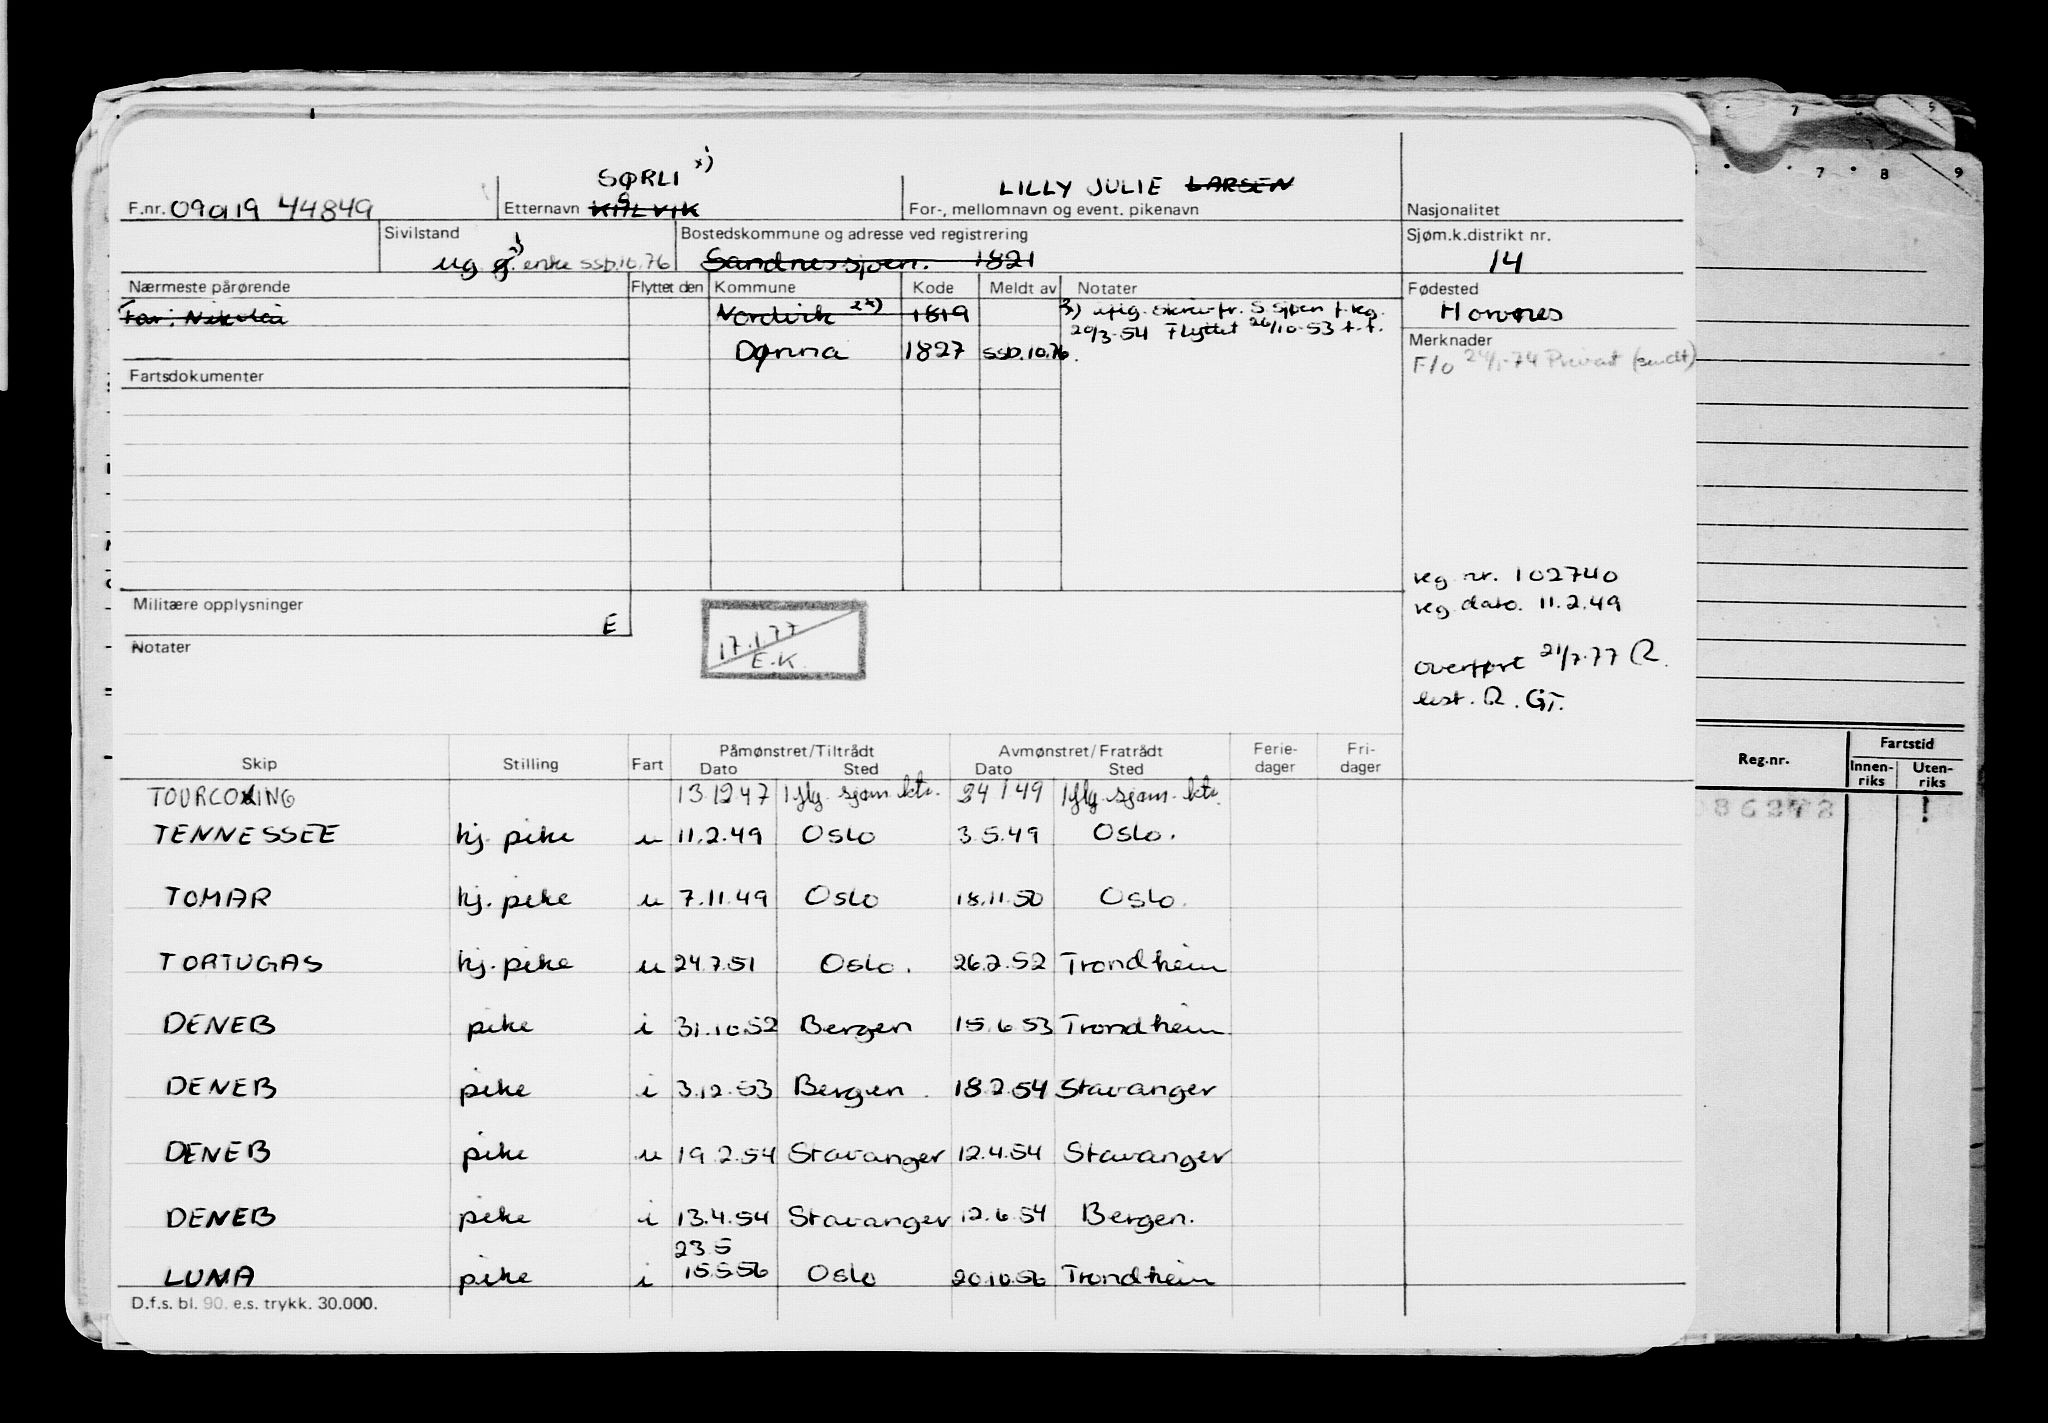 SØRLI x)
LILLY JULIE LARSEN
F.nr. 090919 44849
Etternavn KILVIK
For-, mellomnavn og event. pikenavn
Nasjonalitet
Sivilstand
ug g. enke ssb.10.76
Bostedskommune og adresse ved registrering
Sandnessjøen. 1821
Sjøm.k.distrikt nr.
14
Nærmeste pårørende
Flyttet den
Kommune
Kode
Meldt av
Notater
Fødested
Far: Nikolai
Nordvik 2x) 1819
Hornnes
20/3-54 Flyttet 26/10-53 t.f.
Dønna 1827 ssb.10.76.
Merknader
F/o 24/1-74 Privat (sendt)
Fartsdokumenter
reg. nr. 102740
reg. dato. 11.2.49
Militære opplysninger
E
17.1.77
E.K.
Notater
overført 21/7.77 R.
lest. R. GT.
Skip Stilling Fart Påmønstret/Tiltrådt Dato Sted Avmønstret/Fratrådt Dato Sted Ferie-dager Fri-dager
TOURCOING 13.12.47 Iflg. sjøm.ktr. 24 1 49 Iflg. sjøm.ktr.
TENNESSEE hj. pike u 11.2.49 Oslo 3.5.49 Oslo.
TOMAR hj. pike u 7.11.49 Oslo 18.11.50 Oslo.
TORTUGAS hj. pike u 24.7.51 Oslo. 26.2.52 Trondheim
DENEB pike i 31.10.52 Bergen 15.6.53 Trondheim
DENEB pike i 3.12.53 Bergen. 18.2.54 Stavanger
DENEB pike u 19.2.54 Stavanger 12.4.54 Stavanger
DENEB pike i 13.4.54 Stavanger 12.6.54 Bergen.
23.5
LUNA pike i 15.5.56 Oslo 20.10.56 Trondheim
D.f.s. bl. 90. e.s. trykk. 30.000.
7 5
7 8 9
Reg.nr.
Fartstid
Innen-riks
Uten-riks